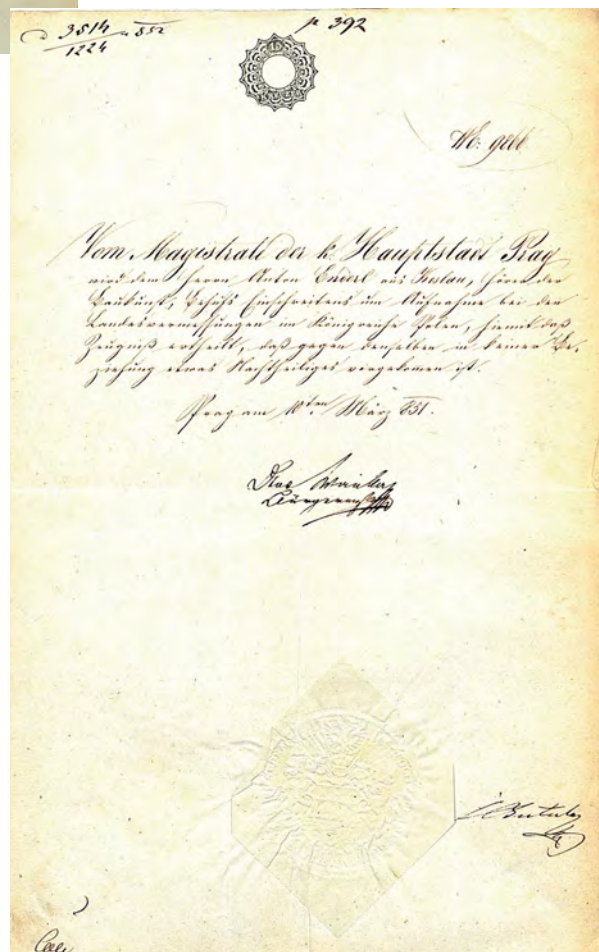 3514 852
1224
p 392
Vom Magistrate der k. Hauptstadt Prag
wird dem Herrn Anton Enderl aus Kieslau, Hörer der
Baukunst, Behufs Einschreitens um Aufnahme bei den
Landesvermessungen im Königreiche Polen, hiemit das
Zeugniß ertheilt, daß gegen denselben in keiner Be-
ziehung etwas Nachtheiliges vorgekommen ist.
Prag am 10ten März 851.